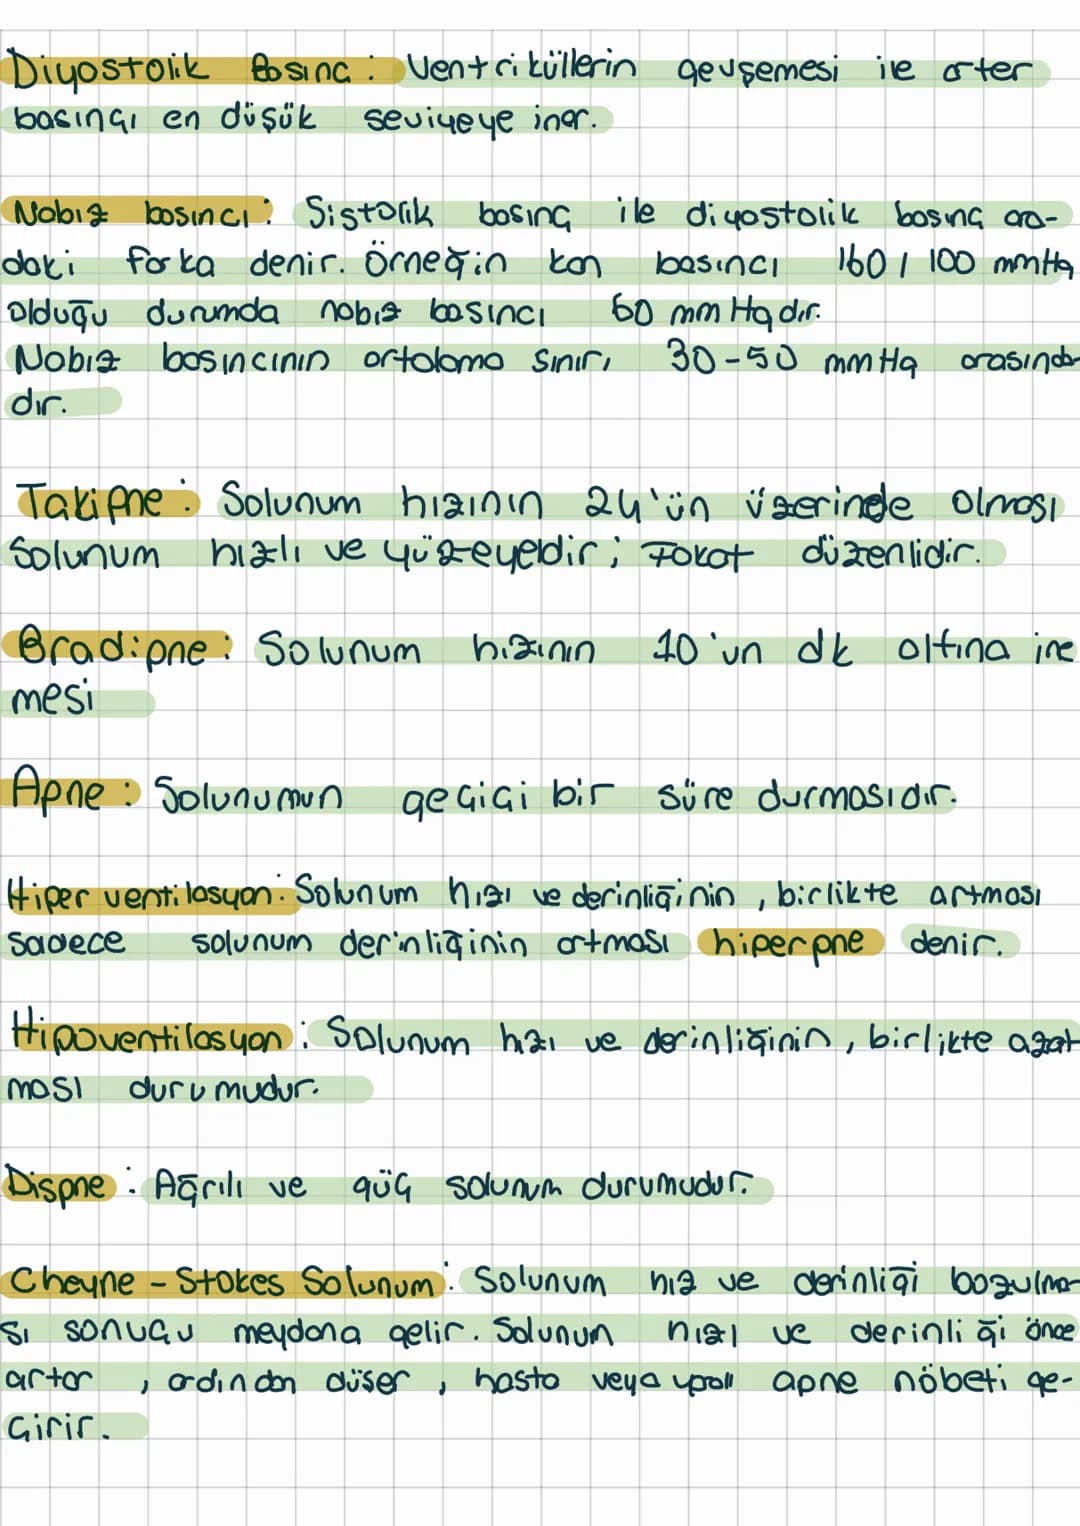 Diyastolik Basınç : Ventriküllerin gevşemesi ile arter
basıncı en düşük seviyeye iner.
Nabız basıncı : Sistolik basınç ile diyastolik basınç ara-
daki farka denir. Örneğin kan basıncı 160 / 100 mmHg
olduğu durumda nabız basıncı 60 mm Hg dır.
Nabız basıncının ortalama sınırı 30-50 mmHg arasında
dır.
Takipne : Solunum hızının 24'ün üzerinde olması
Solunum hızlı ve yüzeyeldir ; Fakat düzenlidir.
Bradipne : Solunum hızının 10'un dk altına ine
mesi
Apne : Solunumun geçici bir süre durmasıdır.
Hiper ventilasyon : Solunum hızı ve derinliğinin , birlikte artması
sadece solunum derinliğinin artması hiperpne denir.
Hipoventilasyon : Solunum hızı ve derinliğinin , birlikte azal
ması durumudur.
Dispne : Ağrılı ve güç solunum durumudur.
Cheyne - Stokes Solunum : Solunum hız ve derinliği bozulma
sı sonucu meydana gelir. Solunun hızı ve derinliği önce
artar , ardından düşer , hasta apne nöbeti ge-
çirir.